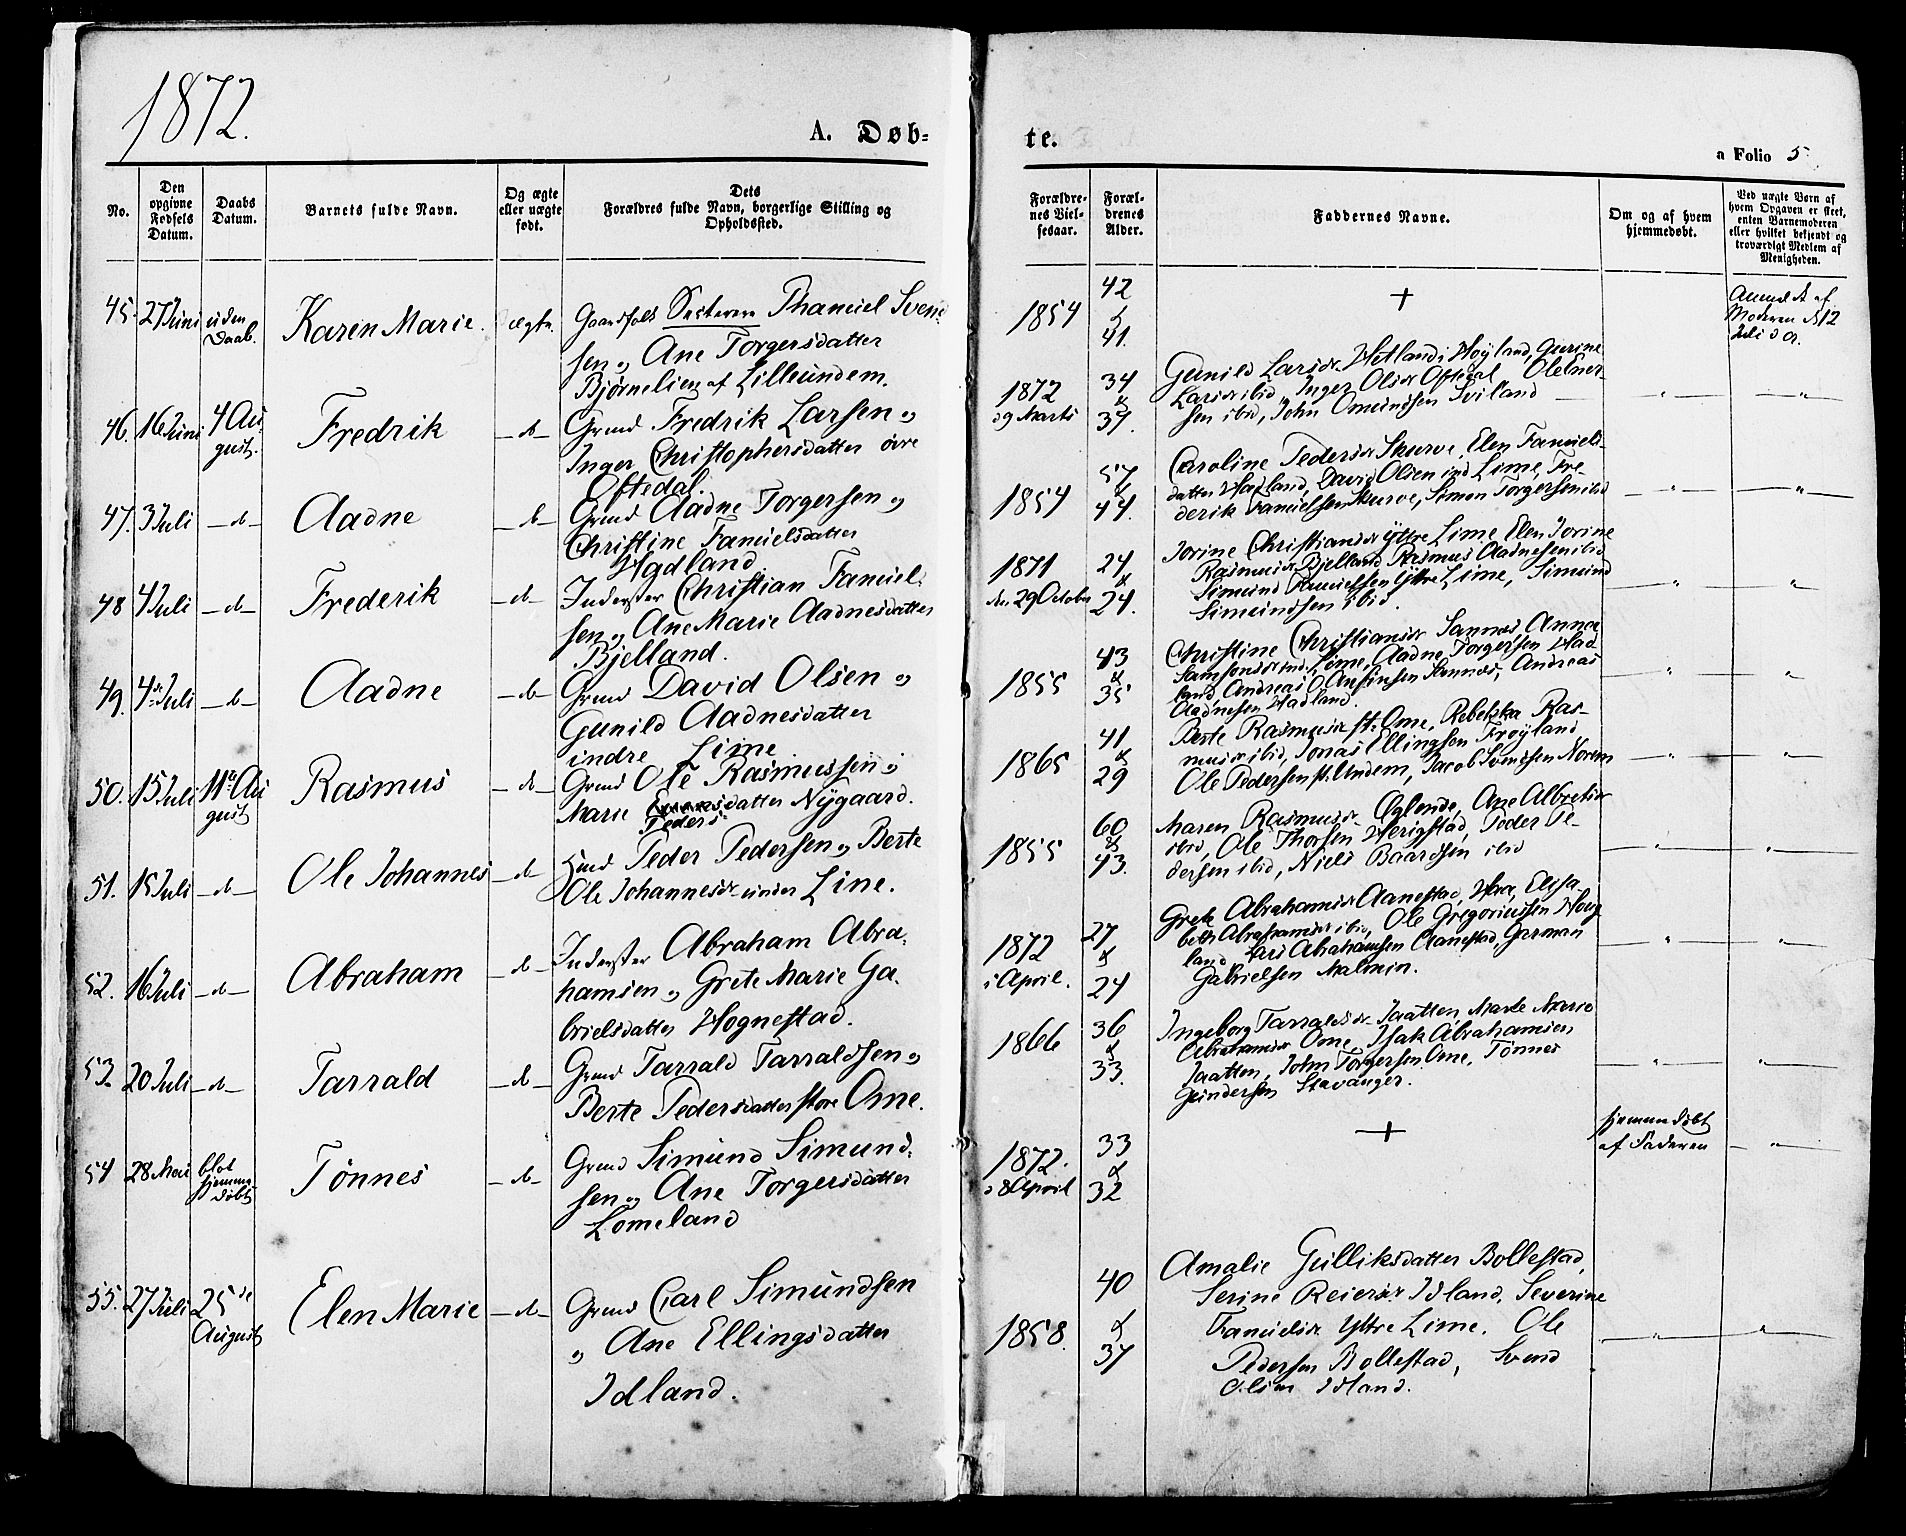 1872.
A. Døb=
te.
a Folio 5
No.
Den opgivne Fødsels Datum.
Daabs Datum.
Barnets fulde Navn.
Og ægte eller uægte født.
Dets Forældres fulde Navn, borgerlige Stilling og Opholdssted.
Forældrenes Vielsesaar.
Forældrenes Alder.
Faddernes Navne.
Om og af hvem hjemmedøbt.
Ved uægte Børn af hvem Opgaven er skeet, enten Barnemoderen eller hvilket bekjendt og troværdigt Medlem af Menigheden.
45. 27 Juni uden Daab. Karen Marie. ægte.
Gaardfolk Svend-
sen og Ane Torgersdatter
Bjørnelien af Lilleundem.
1854
42
&
41.
+
Anmeldt af
Moderen d 12
Juli d a.
46. 16 Juni 4 August. Fredrik — d —
Grmd Fredrik Larsen og
Inger Christophersdatter øvre
Oftedal.
1872
29 Marts
34
&
37.
Gunild Larsdr Hetland i Høyland, Gurine
Larsdr ibid, Inger Olsdr Oftedal
sen ibid, John Omundsen Sviland
47. 3 Juli — d — Aadne — d —
Grmd Aadne Torgersen og
Christine Samuelsdatter
Hadland
1854
57
&
44.
Caroline Pedersdr Skurve, Elen Samuels-
datter Hadland, David Olsen ind Lime, Fre
derik Samuelsen Skurve, Simon Torgersen ibid
48 4 Juli — d — Frederik — d —
Inderster Christian Samuel-
sen og Ane Marie Aadnesdatter
Bjelland.
1871
den 29 October
24
&
24.
Jorine Christiansdr Ytre Lime, Elen Jorine
Rasmusdr Bjelland, Rasmus Aadnesen ibid
Simund Samuelsen Ytre Lime, Simund
Simundsen ibid.
49. 4de Juli — d — Aadne — d —
Grmd David Olsen og
Gunild Aadnesdatter
indre Lime
1855
43
&
35
Christine Christiansdr Sannes, Anna
Samsonsdr ind. Lime, Aadne Torgersen Had
land, Andreas O Ausinsen Sannes, Andreas
Aadnesen Hadland.
50. 15 Juli 11te August Rasmus — d —
Grmd Ole Rasmussen og
Marie Pedersdatter Nygaard.
1865
41
&
29
Berte Rasmusdr st. Ome, Rebekka Ras-
musdr ibid, Jonas Ellingsen Frøyland
Ole Pedersen st. Undem, Jacob Svendsen Norem
51. 15 Juli — d — Ole Johannes — d —
Grmd Peder Pedersen og Berte
Ole Johannesdr Line.
1855
60
&
43.
Maren Rasmusdr Øglende, Ane Albretsdr
ibid, Ole Thorsen Herigstad, Peder Pe-
dersen ibid, Niels Baardsen ibid
52. 16 Juli — d — Abraham — d —
Inderster Abraham Abra-
hamsen og Grete Marie Ga-
brielsdatter Hognestad.
1872
i April.
27
&
24
Grete Abrahamsdr Aanestad, Haa, Elisa-
beth Abrahamsdr ibid, Ole Gregoriussen Houg
land, Lars Abrahamsen Aanestad, German
Gabrielsen Malmin.
53. 20 Juli — d — Tarrald — d —
Grmd Tarrald Tarraldsen og
Berte Pedersdatter store Ome.
1866
36
&
33.
Ingeborg Tarraldsdr Jaatten, Marte Marie
Abrahamsdr Ome, Isak Abrahamsen
Jaatten, John Torgersen Ome, Tønnes
Gundersen Stavanger.
54 28 Mai blot hjemmedøbt Tønnes — d —
Grmd Simund Simund-
sen og Ane Torgersdatter
Lomeland
1872.
d 8 April
33
&
32
+
hjemmedøbt
af Faderen
55. 27 Juli 25de August Elen Marie — d —
Grmd Carl Simundsen
og Ane Ellingsdatter
Idland.
1858.
40
&
37
Amalie Gulliksdatter Bollestad,
Serine Reiersdr Idland, Severine
Samuelsdr Ytre Lime. Ole
Pedersen Bollestad, Svend
Olsen Idland.